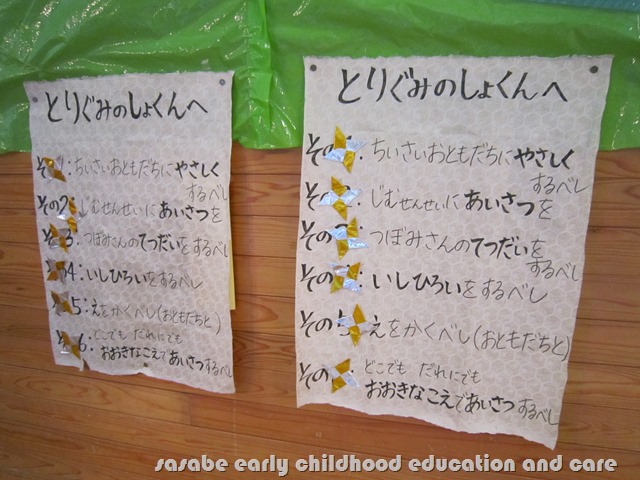 とりぐみのしょくんへ
その1:ちいさいおともだちにやさしく
するべし
その2:じむせんせいにあいさつを
その3:つぼみさんのてつだいをするべし
その4:いしひろいをするべし
その5:えをかくべし(おともだちと)
その6:どこでも だれにでも
おおきなこえであいさつするべし
とりぐみのしょくんへ
その:ちいさいおともだちにやさしく
するべし
その:じむせんせいにあいさつを
その:つぼみさんのてつだいを
するべし
その:いしひろいをするべし
その5 えをかくべし(おともだちと)
その:どこでも だれにでも
おおきなこえであいさつするべし
sasabe early childhood education and care